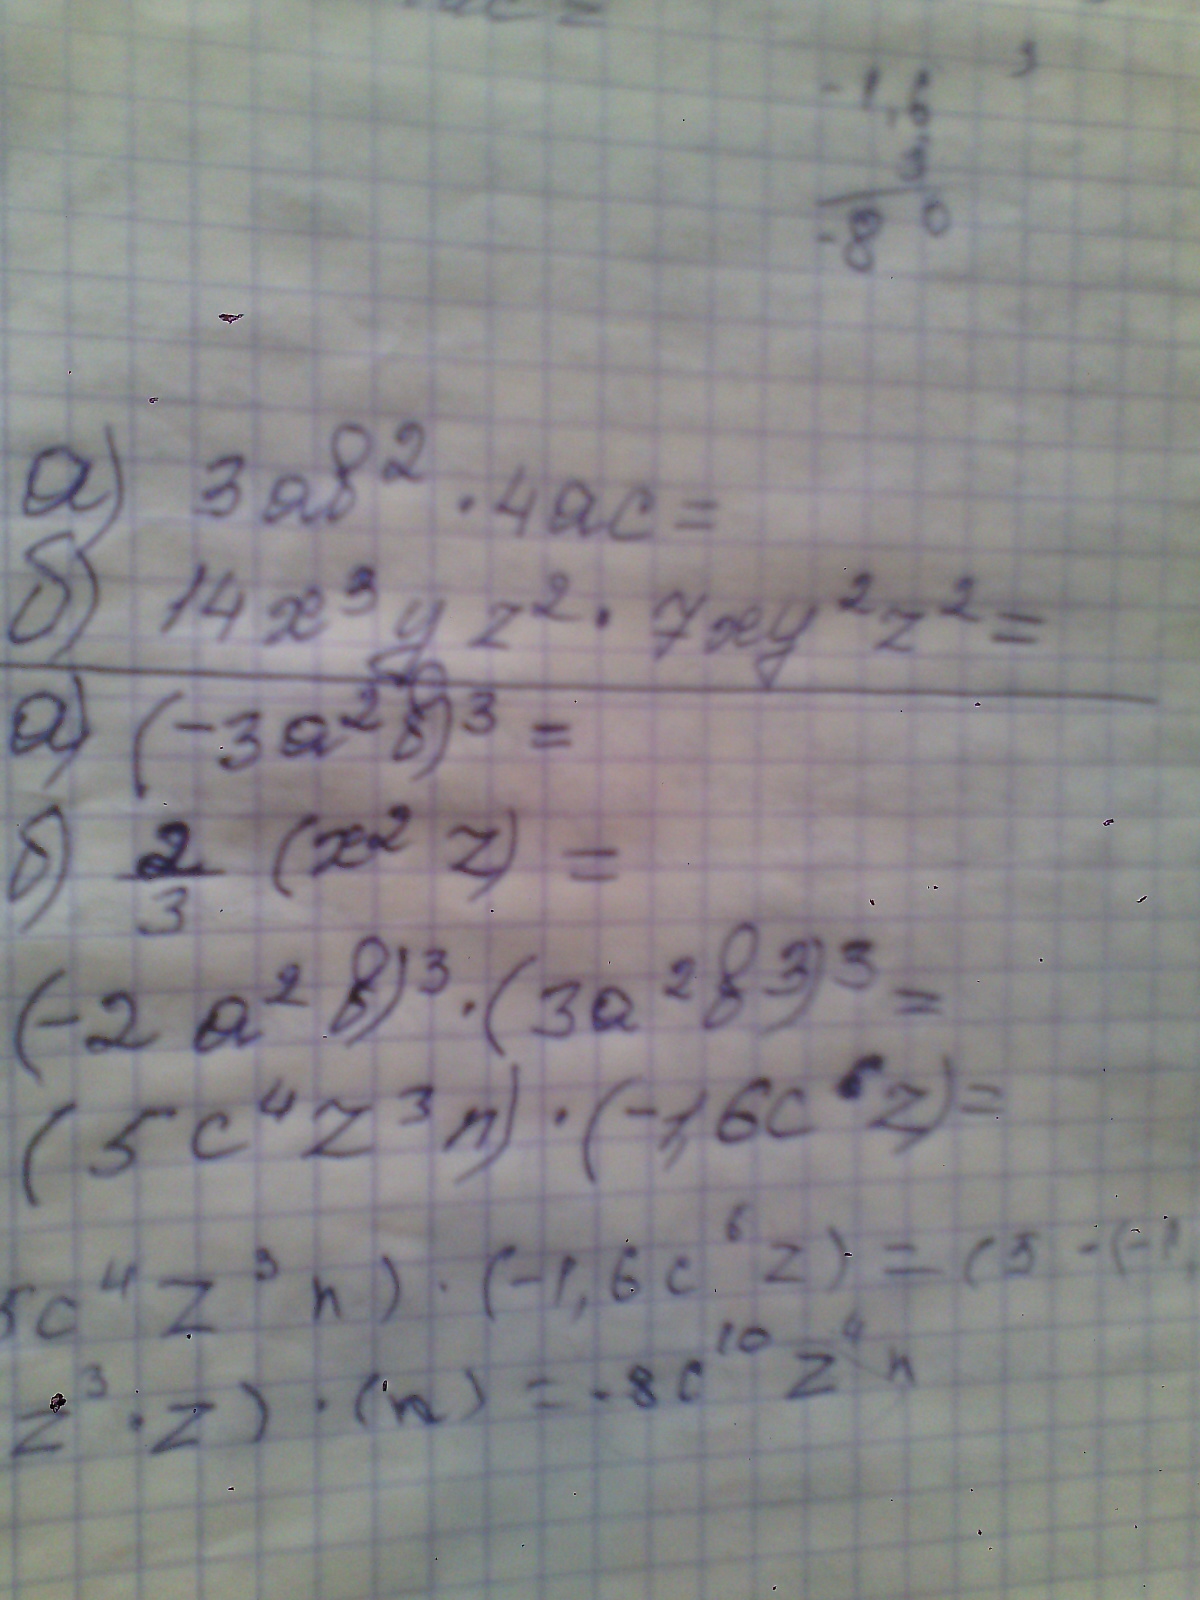 -1,6
-8 0
а) 3ав² · 4ас =
б) 14x³y z² · 7xy²z² =
а) (-3а²в)³ =
б) 2/3 (x² z) =
(-2 а² в)³ · (3а²в3)³ =
(5c⁴z³n) · (-1,6c⁶z) =
5c⁴z³n) · (-1,6c⁶z) = (5 · (-1,
z³ · z) · (n) = -8c¹⁰z⁴n